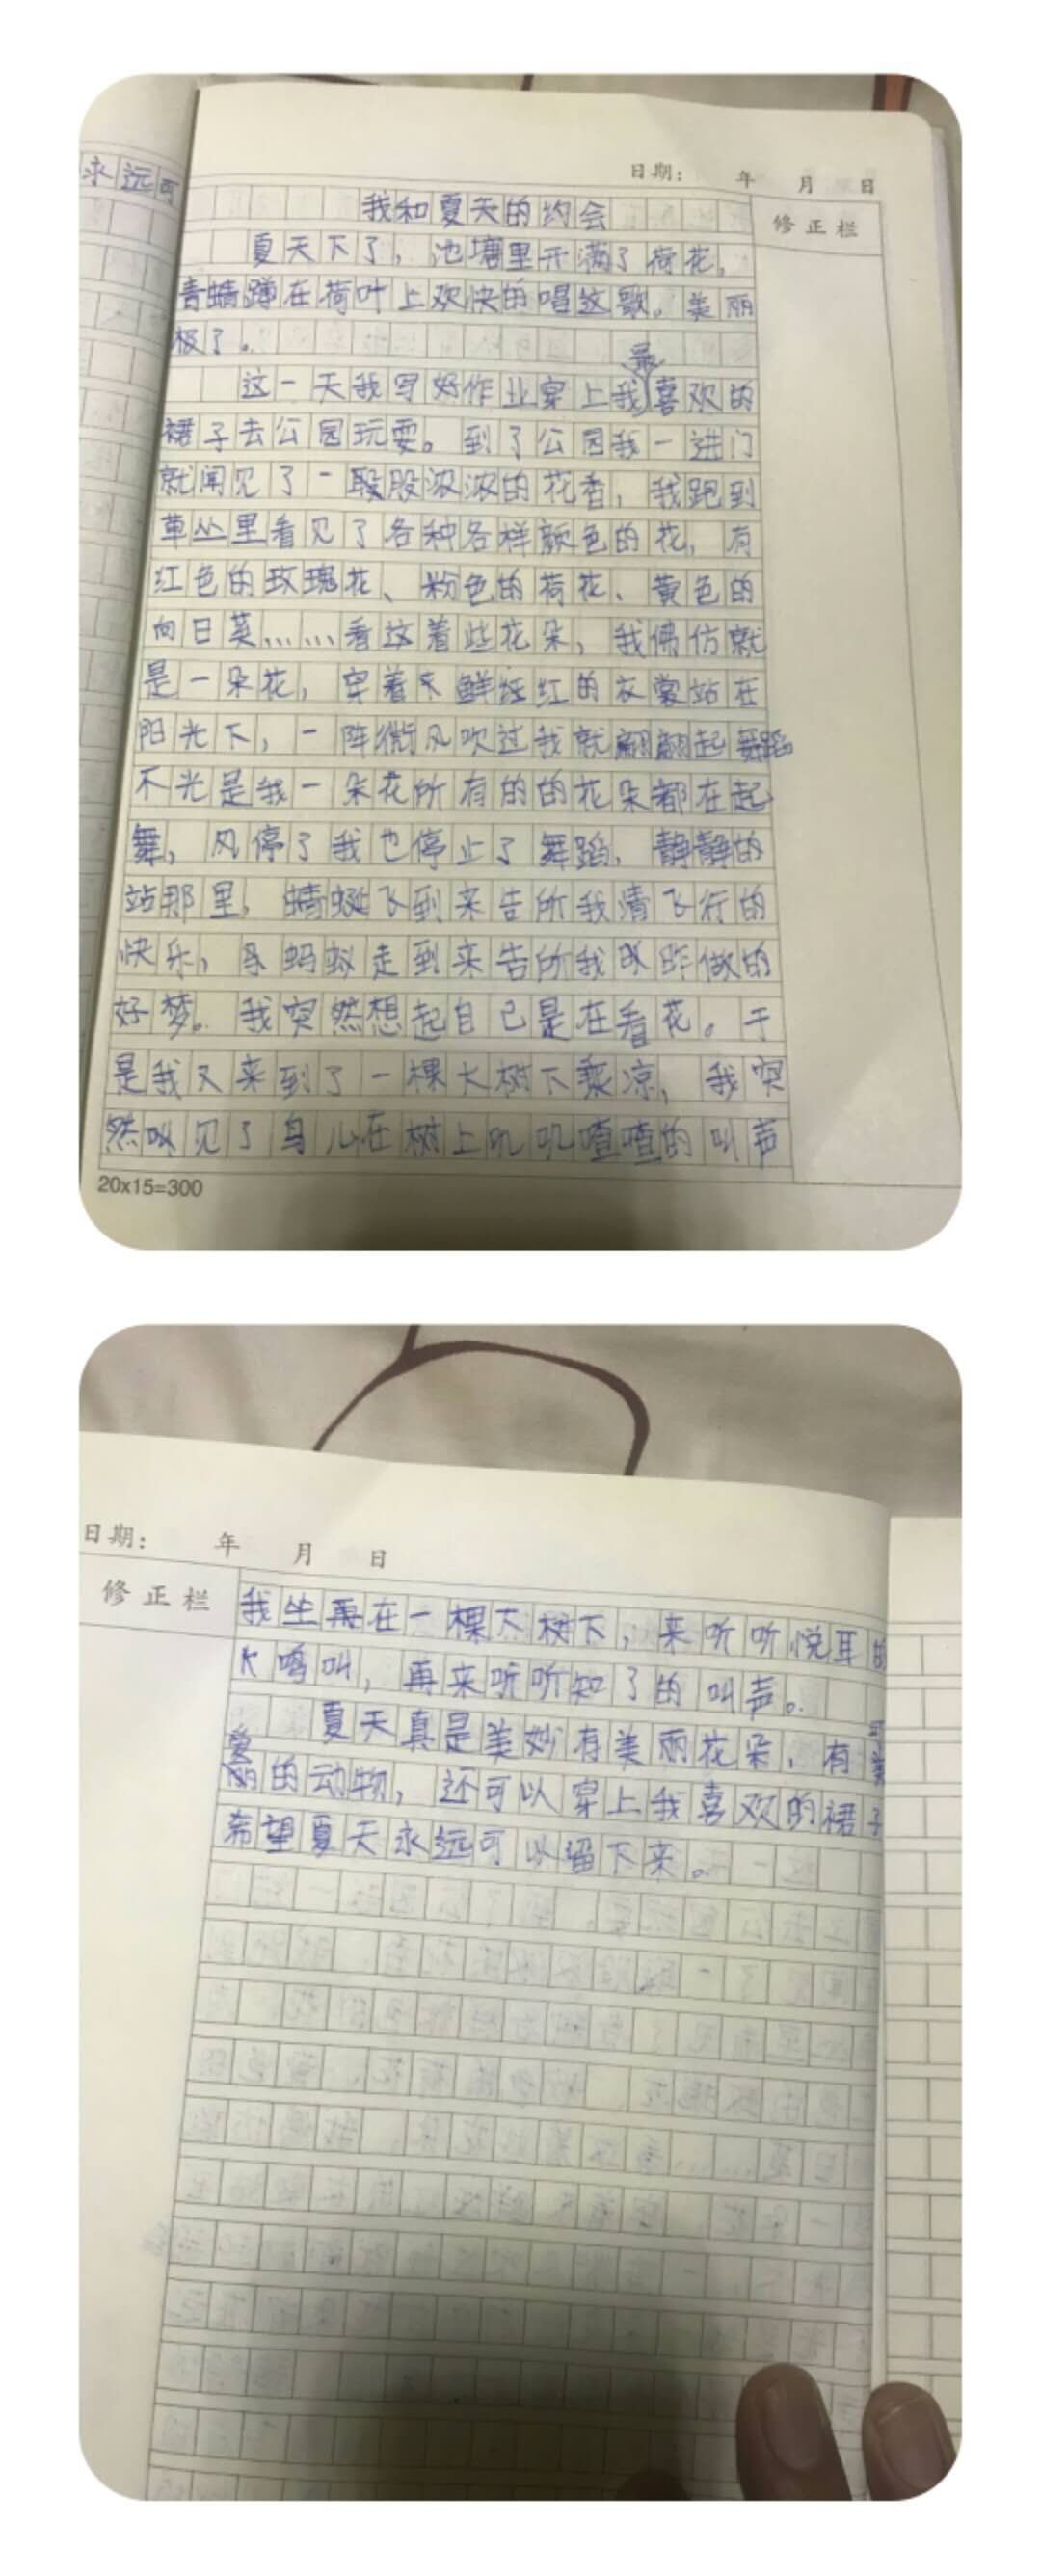 永远可
日期： 年 月 日
修正栏
我和夏天的约会
夏天下了，池塘里开满了荷花，
青蜻蹲在荷叶上欢快的唱这歌。美丽
极了。
最
这一天我写好作业穿上我喜欢的
裙子去公园玩耍。到了公园我一进门
就闻见了一股浓浓的花香，我跑到
草丛里看见了各种各样颜色的花，有
红色的玫瑰花、粉色的荷花、黄色的
向日葵……看这着些花朵，我佛仿就
是一朵花，穿着鲜红的衣裳站在
阳光下，一阵微风吹过我就翩翩起舞蹈
不光是我一朵花所有的的花朵都在起
舞，风停了我也停止了舞蹈，静静的
站那里，蜻蜓飞到来告所我清飞行的
快乐，蚂蚁走到来告所我昨做的
好梦。我突然想起自己是在看花。于
是我又来到了一棵大树下乘凉，我突
然见了鸟儿在树上叽叽喳喳的叫声
20x15=300
日期： 年 月 日
修正栏
我坐在一棵大树下，来听听悦耳的
鸣叫，再来听听知了的叫声。
夏天真是美妙有美丽花朵，有可
爱的动物，还可以穿上我喜欢的裙子
希望夏天永远可以留下来。